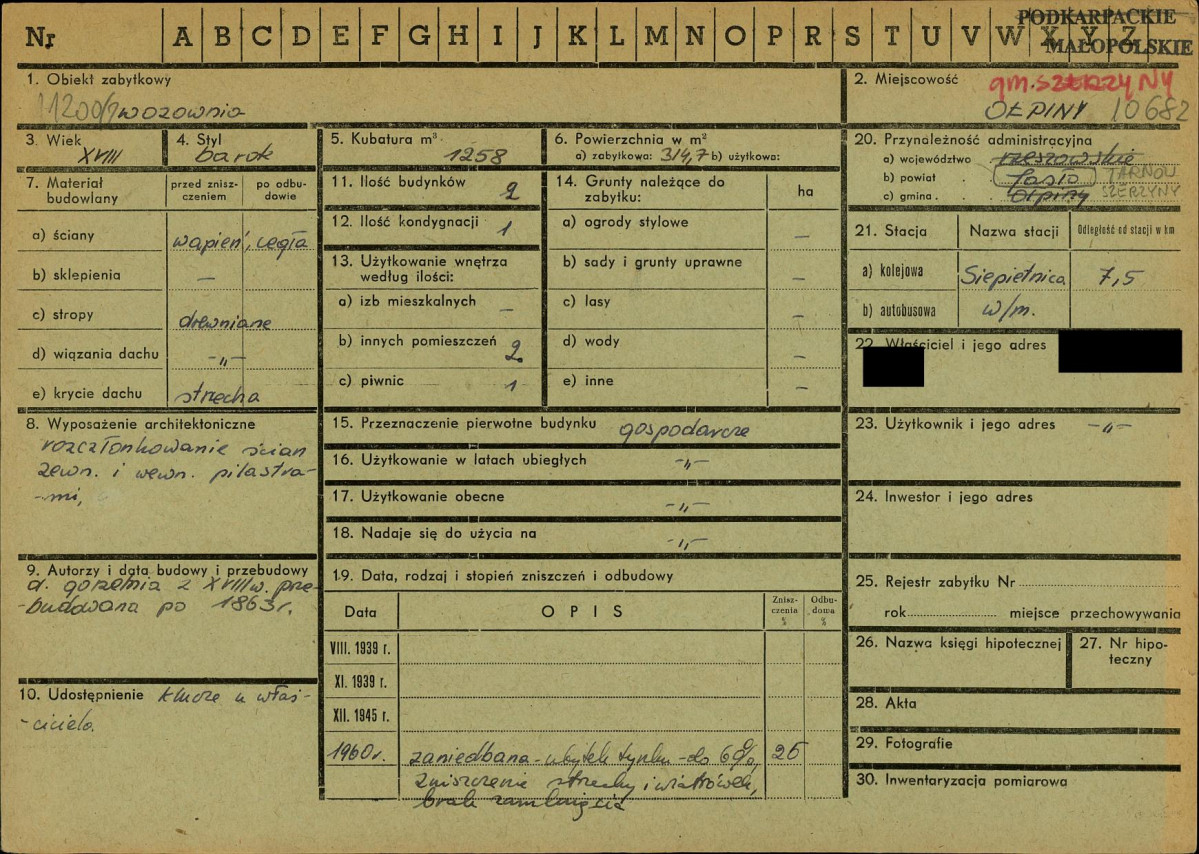 Nr A B C D E F G H I J K L M N O P R S T U V W X Y Z
PODKARPACKIE
MAŁOPOLSKIE
1. Obiekt zabytkowy
wozownia
2. Miejscowość gm. SZERZYNY
OŁPINY 10682
3. Wiek
XVIII
4. Styl
barok
5. Kubatura m³
1258
6. Powierzchnia w m²
a) zabytkowa: 314,7 b) użytkowa:
20. Przynależność administracyjna
a) województwo rzeszowskie
b) powiat Jasło TARNÓW
c) gmina Ołpiny SZERZYNY
7. Materiał budowlany
przed zniszczeniem
po odbudowie
a) ściany wapień, cegła
b) sklepienia –
c) stropy drewniane
d) wiązania dachu -„-
e) krycie dachu strzecha
11. Ilość budynków 2
12. Ilość kondygnacji 1
13. Użytkowanie wnętrza
według ilości:
a) izb mieszkalnych –
b) innych pomieszczeń 2
c) piwnic 1
14. Grunty należące do
zabytku:
ha
a) ogrody stylowe –
b) sady i grunty uprawne –
c) lasy –
d) wody –
e) inne –
21. Stacja
Nazwa stacji
Odległość od stacji w km
a) kolejowa Siepietnica 7,5
b) autobusowa w/m.
22. Właściciel i jego adres
8. Wyposażenie architektoniczne
rozczłonkowanie ścian
zewn. i wewn. pilastra-
-mi,
15. Przeznaczenie pierwotne budynku gospodarcze
16. Użytkowanie w latach ubiegłych -„-
17. Użytkowanie obecne -„-
18. Nadaje się do użycia na -„-
23. Użytkownik i jego adres -„-
24. Inwestor i jego adres
9. Autorzy i data budowy i przebudowy
d. gorzelnia z XVIII w. prze-
-budowana po 1863 r.
10. Udostępnienie klucze u właś-
-ciciela.
19. Data, rodzaj i stopień zniszczeń i odbudowy
Data
OPIS
Zniszczenia %
Odbudowa %
VIII. 1939 r.
XI. 1939 r.
XII. 1945 r.
1960 r. zaniedbana - ubytek tynku - do 60%, 25
zniszczenie strzechy i wiatrówek,
brak zamknięcia
25. Rejestr zabytku Nr
rok miejsce przechowywania
26. Nazwa księgi hipotecznej
27. Nr hipoteczny
28. Akta
29. Fotografie
30. Inwentaryzacja pomiarowa